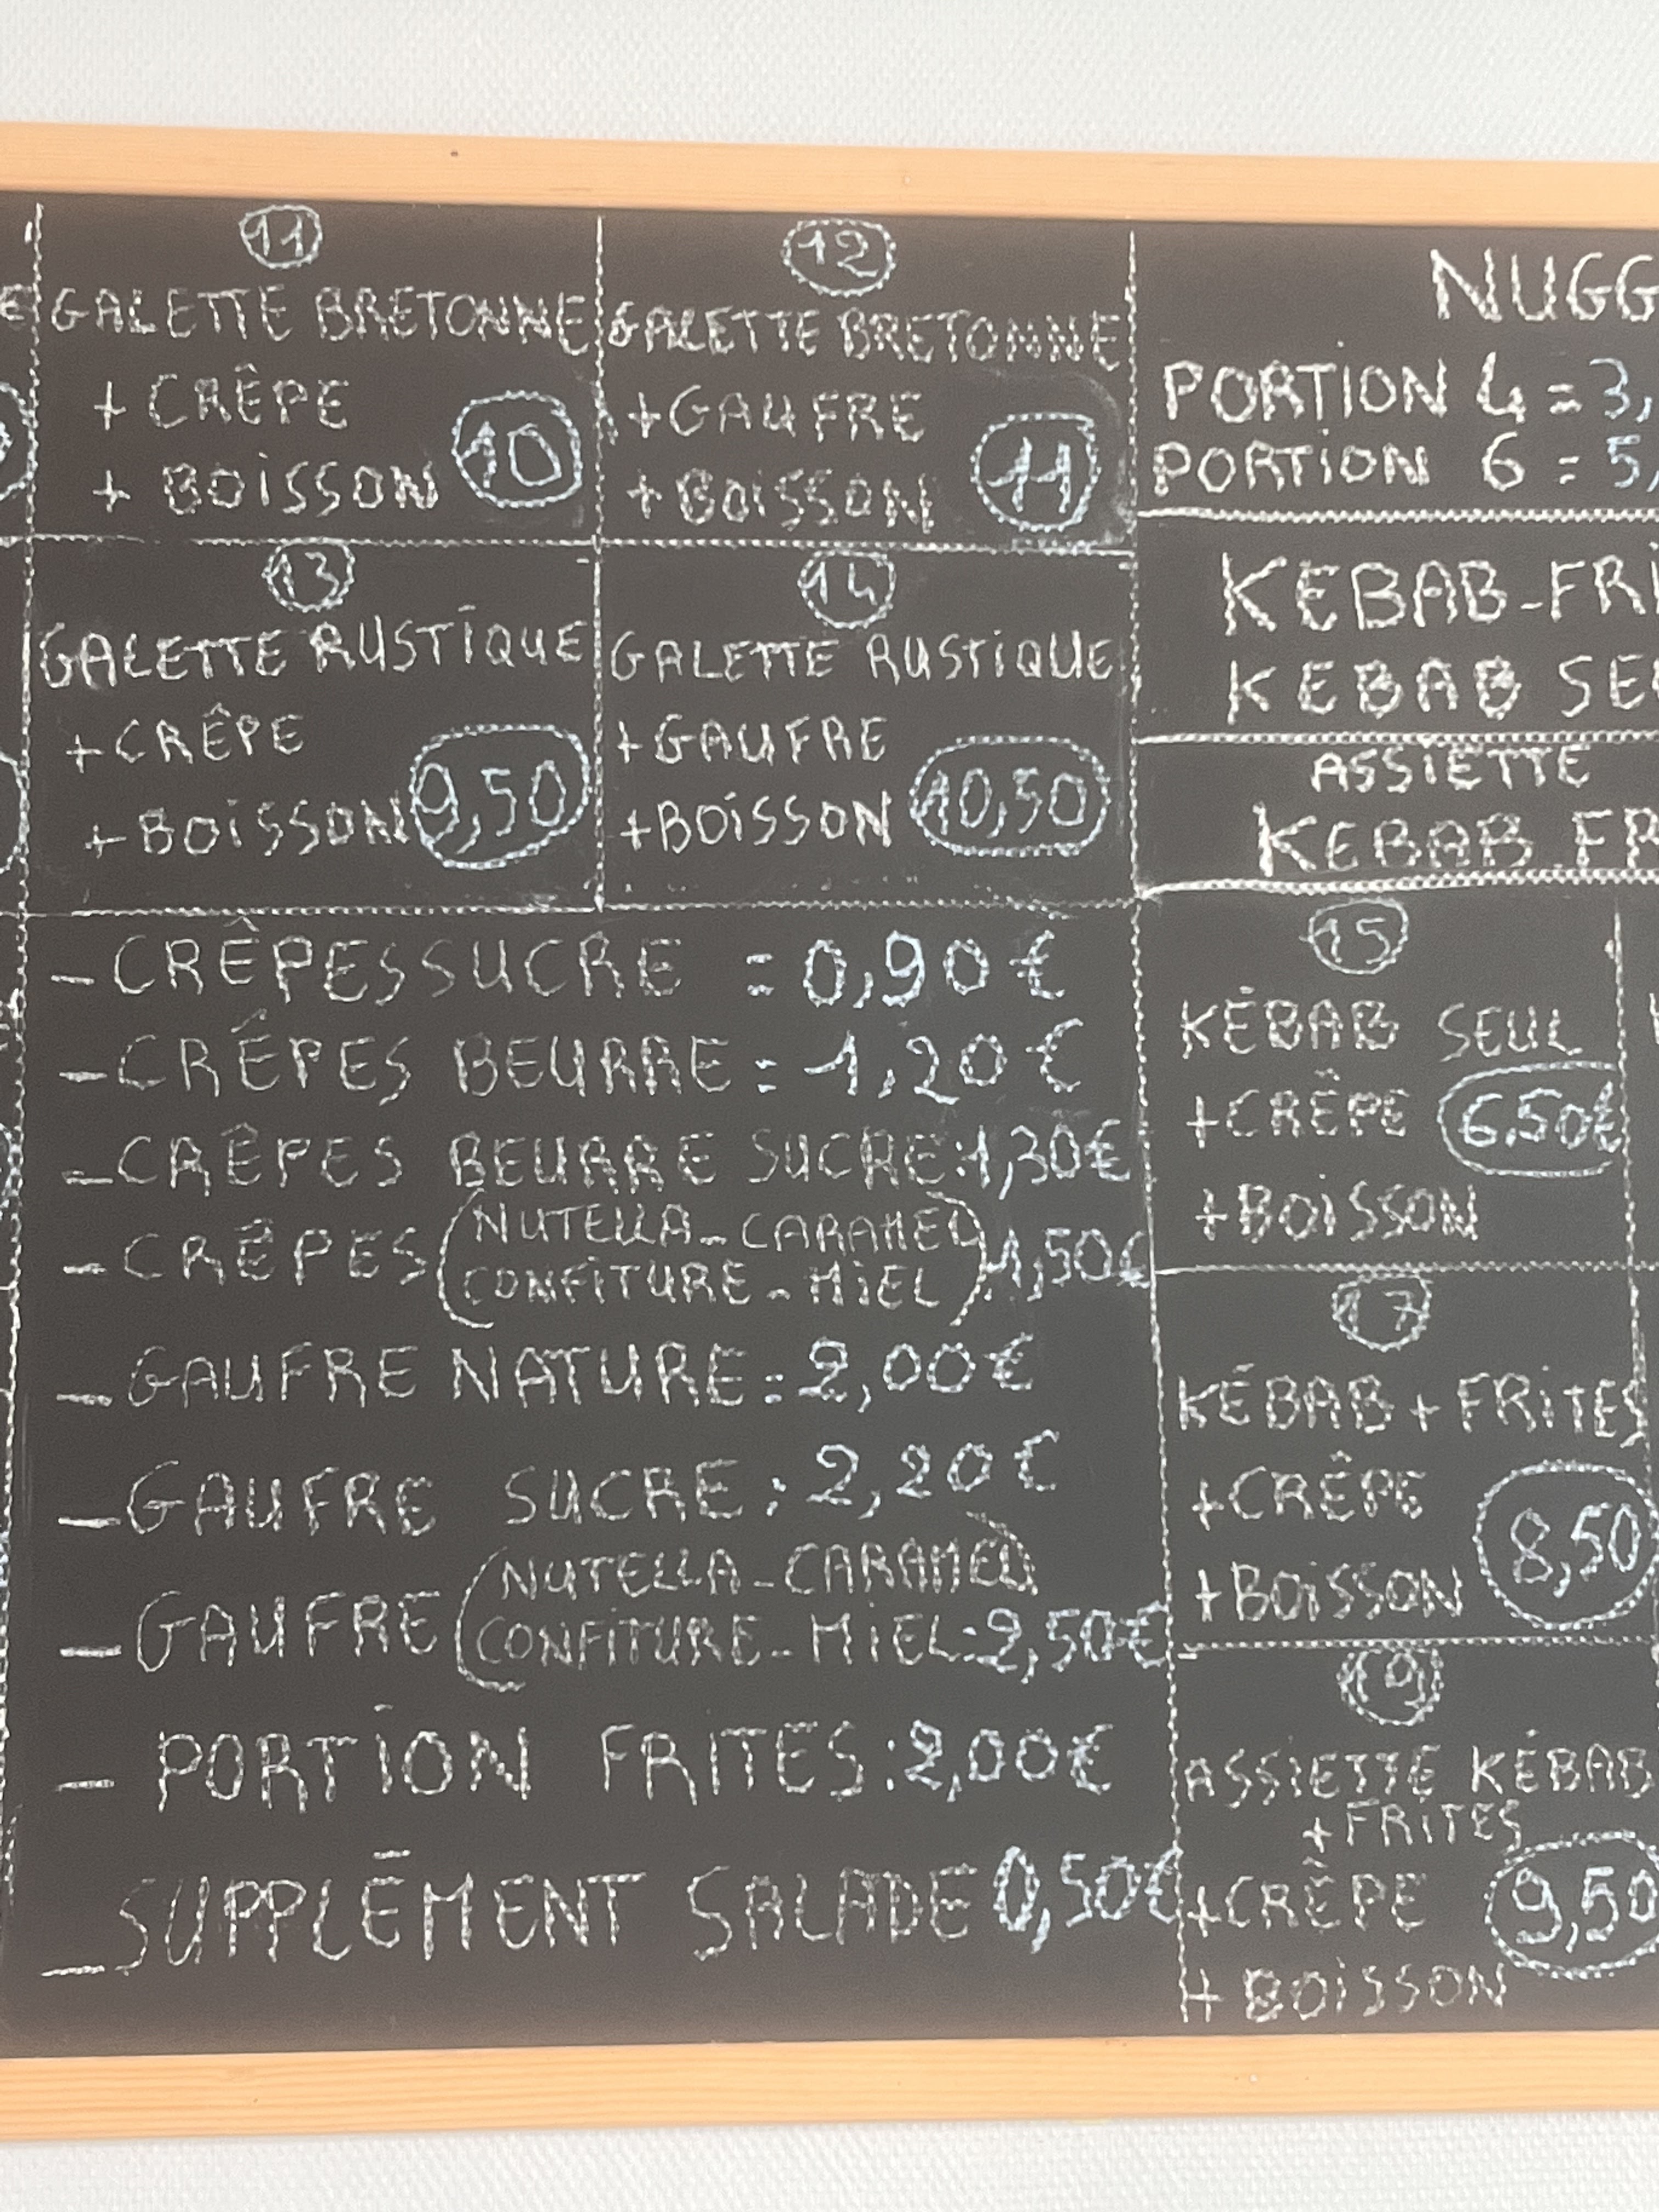 11
GALETTE BRETONNE
+ CRÊPE
+ BOISSON 10
12
GALETTE BRETONNE
+GAUFRE
+BOISSON 11
13
GALETTE RUSTIQUE
+CRÊPE
+BOISSON 9,50
14
GALETTE RUSTIQUE
+GAUFRE
+BOISSON 10,50
- CRÊPES SUCRE = 0,90€
- CRÊPES BEURRE : 1,20€
- CRÊPES BEURRE SUCRE : 1,30€
- CRÊPES (NUTELLA - CARAMEL
CONFITURE - MIEL) : 1,50€
- GAUFRE NATURE : 2,00€
- GAUFRE SUCRE : 2,20€
- GAUFRE (NUTELLA - CARAMEL)
CONFITURE - MIEL : 2,50€
- PORTION FRITES : 2,00€
- SUPPLÉMENT SALADE 0,50€
NUGG
PORTION 4 = 3,
PORTION 6 = 5,
KEBAB-FRI
KEBAB SEU
ASSIETTE
KEBAB FR
15
KÉBAB SEUL
+CRÊPE 6,50€
+BOISSON
17
KÉBAB + FRITES
+CRÊPE
+BOISSON 8,50
19
ASSIETTE KÉBAB
+FRITES
+CRÊPE 9,50
+ BOISSON